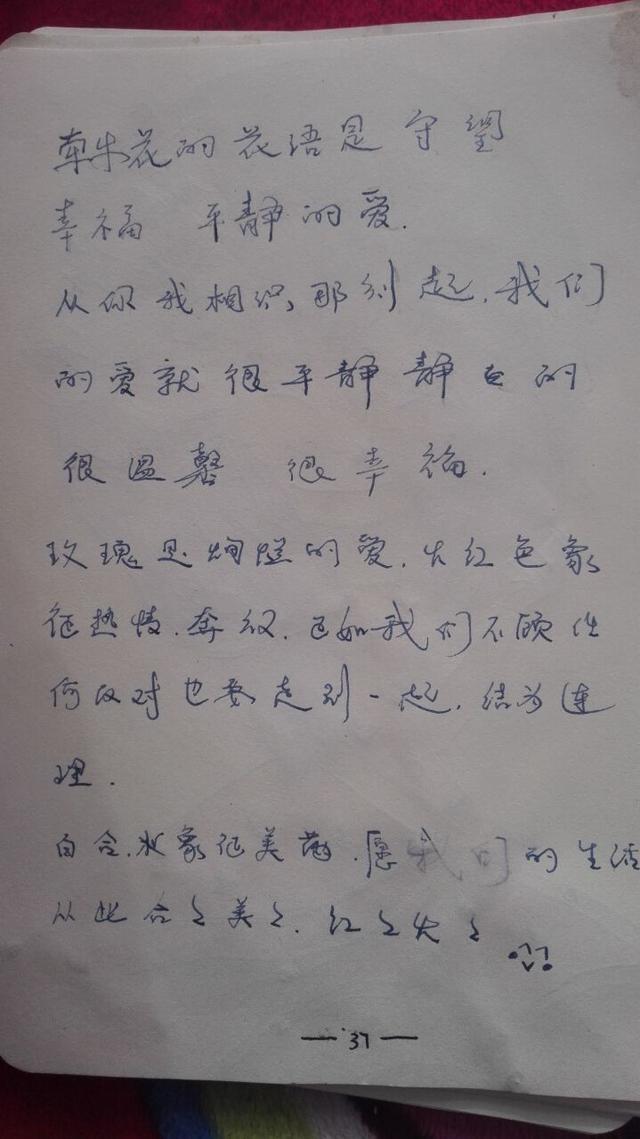 牵牛花的花语是守望
幸福 平静的爱.
从你我相识,那刻起,我们
的爱就很平静静白的
很温馨 很幸福.
玫瑰是绚烂的爱,大红色象
征热情.奔放.正如我们不顾任
何反对也要走到一起,结为连
理.
百合.水象征美满.愿我们的生活
从此合々美々.红々火々
— 37 —